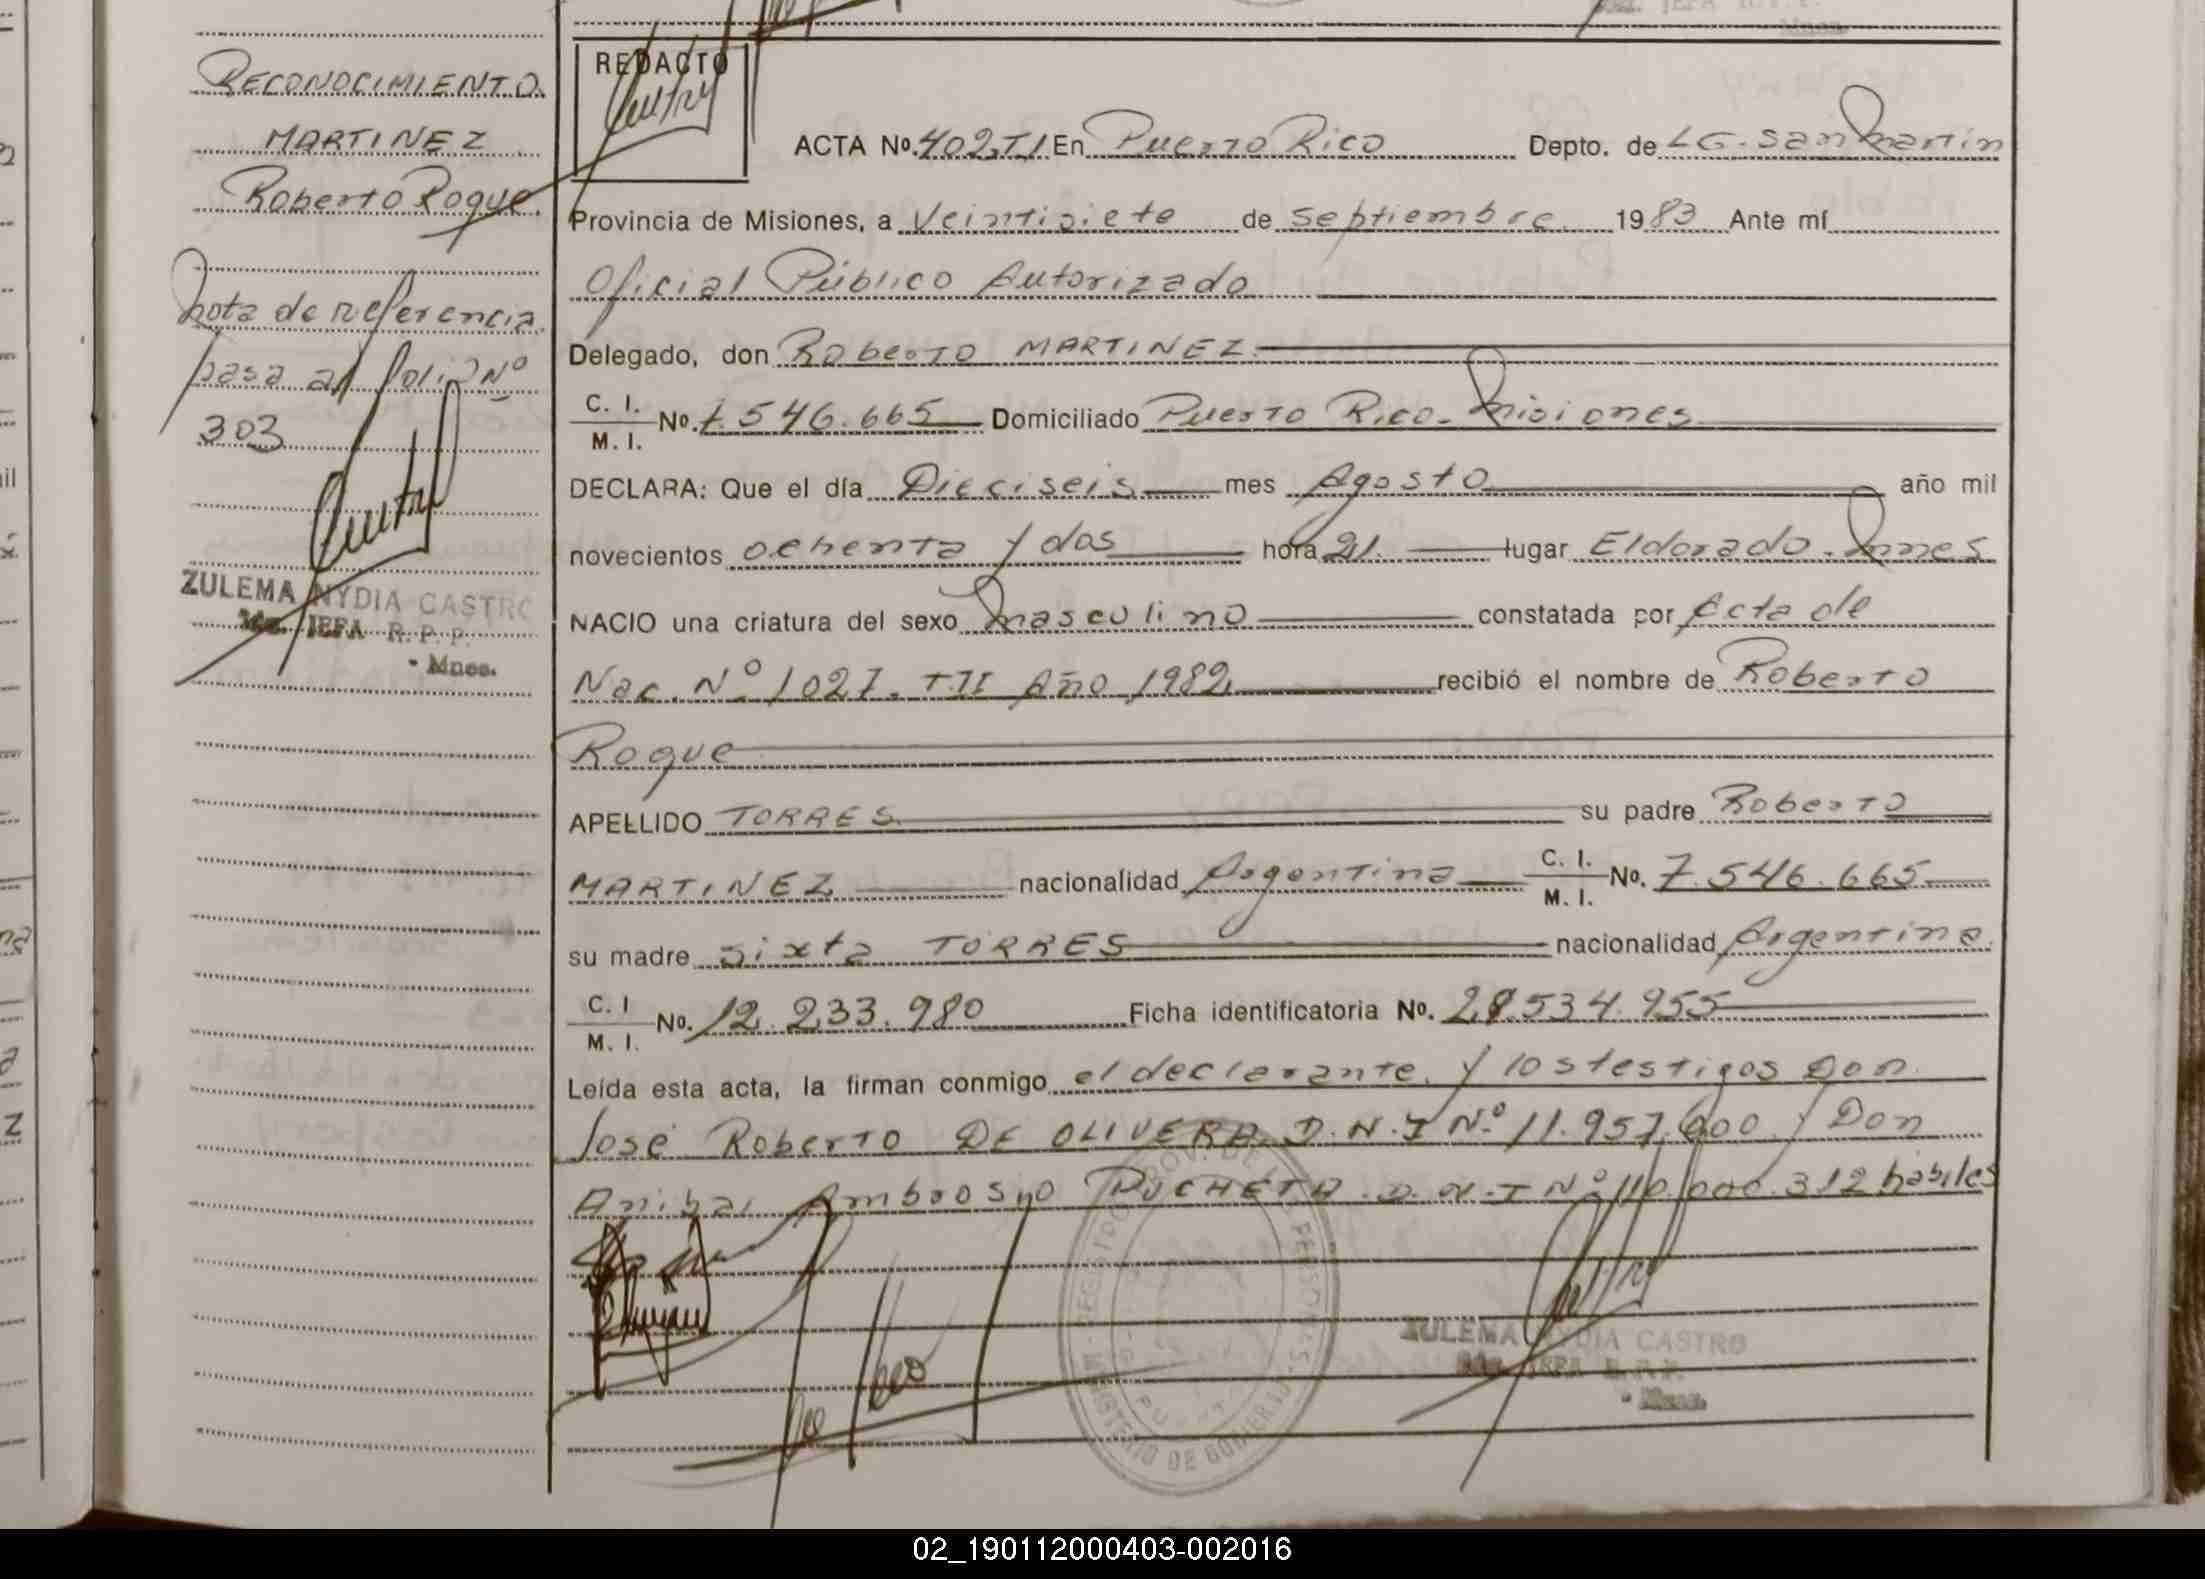 RECONOCIMIENTO
MARTINEZ
Roberto Roque
Nota de referencia
pasa al folio Nº
303
ZULEMA NYDIA CASTRO
JEFA R.P.P.
- Mnes.
REDACTO
ACTA Nº 402.TI En Puerto Rico Depto. de LG. San Martin
Provincia de Misiones, a Veintisiete de septiembre 1983 Ante mí
Oficial Público Autorizado
Delegado, don Roberto MARTINEZ
C. I.
M. I. No. 7.546.665 Domiciliado Puerto Rico - Misiones
DECLARA: Que el día Dieciseis mes Agosto año mil
novecientos ochenta y dos hora 21. lugar Eldorado - Mnes
NACIO una criatura del sexo Masculino constatada por Acta de
Nac. Nº 1027. TII Año 1982 recibió el nombre de Roberto
Roque
APELLIDO TORRES su padre Roberto
MARTINEZ nacionalidad Argentina C. I.
M. I. No. 7.546.665
su madre Sixta TORRES nacionalidad Argentina
C. I
M. I. No. 12.233.980 Ficha identificatoria No. 28.534.955
Leída esta acta, la firman conmigo el declarante y los testigos Don
José Roberto DE OLIVERA D.N.I Nº 11.957.600 y Don
Anibal Ambrosio PUCHETA D.N.I Nº 10.000.312 hábiles
ZULEMA NYDIA CASTRO
JEFA R.P.P.
- Mnes.
MINISTERIO DE GOBIERNO
02_190112000403-002016